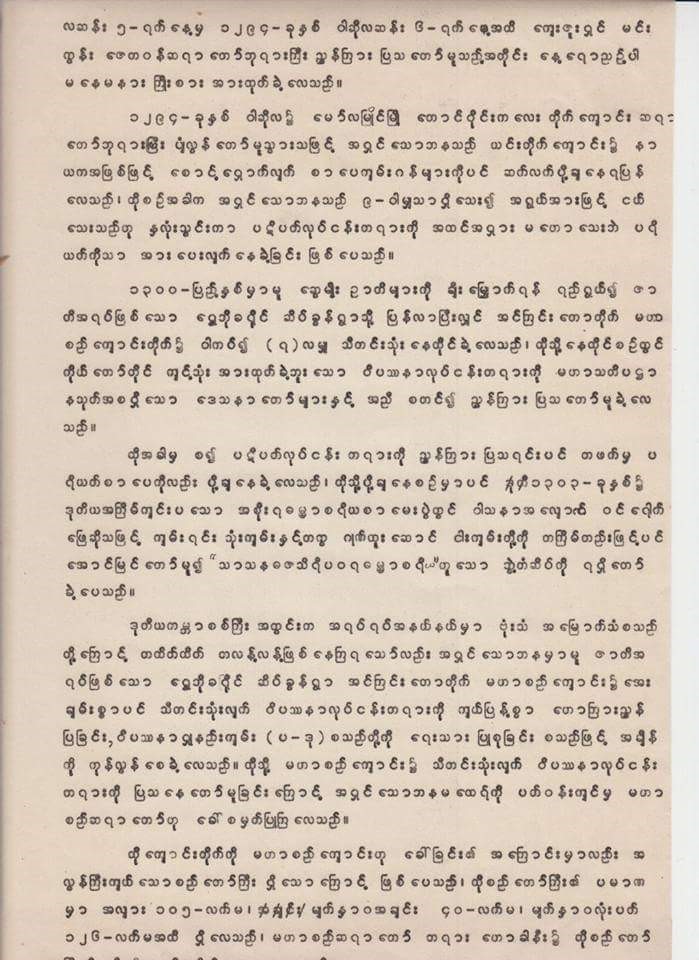 လဆန်း ၅-ရက်နေ့မှ ၁၂၉၄-ခုနှစ် ဝါဆိုလဆန်း ၆-ရက်နေ့အထိ ကျေးဇူးရှင် မင်း
ကွန်း ဇေတဝန်ဆရာတော်ဘုရားကြီး ညွှန်ကြားပြသတော်မူသည့်အတိုင်း နေ့ရောညဉ့်ပါ
မနေမနား ကြိုးစားအားထုတ်ခဲ့လေသည်။
၁၂၉၄-ခုနှစ် ဝါဆိုလ၌ မော်လမြိုင်မြို့ တောင်ဝိုင်းကလေးတိုက်ကျောင်း ဆရာ
တော်ဘုရားကြီး ပျံလွန်တော်မူသွားသဖြင့် အရှင်သောဘနသည် ယင်းတိုက်ကျောင်း၌ နာ
ယကအဖြစ်ဖြင့် စောင့်ရှောက်လျက် စာပေကျမ်းဂန်များကိုပင် ဆက်လက်ပို့ချနေရပြန်
လေသည်၊ ထိုစဉ်အခါက အရှင်သောဘနသည် ၉-ဝါမျှသာရှိသေး၍ အရွယ်အားဖြင့် ငယ်
သေးသည်ဟု နှလုံးသွင်းကာ ပဋိပတ်လုပ်ငန်းတရားကို အထင်အရှား မဟောသေးဘဲ ပရိ
ယတ်ကိုသာ အားပေးလျက်နေခဲ့ခြင်း ဖြစ်ပေသည်။
၁၃၀၀-ပြည့်နှစ်မှာမူ ဆွေမျိုးဉာတိများကို ချီးမြှောက်ရန် ရည်ရွယ်၍ ဇာ
တိအရပ်ဖြစ်သော ရွှေဘိုခရိုင် ဆိပ်ခွန်ရွာသို့ ပြန်လာပြီးလျှင် အင်ကြင်းတောတိုက် မဟာ
စည်ကျောင်းတိုက်၌ ဝါကပ်၍ (၇)လမျှ သီတင်းသုံးနေထိုင်ခဲ့လေသည်၊ ထိုသို့နေထိုင်စဉ်တွင်
ကိုယ်တော်တိုင် ကျင့်သုံးအားထုတ်ခဲ့ဘူးသော ဝိပဿနာလုပ်ငန်းတရားကို မဟာသတိပဋ္ဌာ
နသုတ်အစရှိသော ဒေသနာတော်များနှင့် အညီ စတင်၍ ညွှန်ကြားပြသတော်မူခဲ့လေ
သည်။
ထိုအခါမှ စ၍ ပဋိပတ်လုပ်ငန်းတရားကို ညွှန်ကြားပြသရင်းပင် တဖက်မှ ပ
ရိယတ်စာပေကိုလည်း ပို့ချနေခဲ့လေသည်၊ ထိုသို့ပို့ချနေစဉ်မှာပင် ၁၃၀၃-ခုနှစ်၌
ဒုတိယအကြိမ်ကျင်းပသော အစိုးရဓမ္မာစရိယစာမေးပွဲတွင် ဝါသနာအလျောက် ဝင်ရောက်
ဖြေဆိုသဖြင့် ကျမ်းရင်းသုံးကျမ်းနှင့်တကွ ဂုဏ်ထူးဆောင် ငါးကျမ်းတို့ကို တကြိမ်တည်းဖြင့်ပင်
အောင်မြင်တော်မူ၍ “သာသနဓဇသိရိပဝရဓမ္မာစရိယ”ဟူသော ဘွဲ့တံဆိပ်ကို ရရှိတော်
မူခဲ့ပေသည်။
ဒုတိယကမ္ဘာစစ်ကြီးအတွင်းက အရပ်ရပ်အနယ်နယ်မှာ ဗုံးသံ အမြောက်သံစသည်
တို့ကြောင့် တထိတ်ထိတ် တလန့်လန့်ဖြစ်နေကြရသော်လည်း အရှင်သောဘနမှာမူ ဇာတိအ
ရပ်ဖြစ်သော ရွှေဘိုခရိုင် ဆိပ်ခွန်ရွာ အင်ကြင်းတောတိုက် မဟာစည်ကျောင်း၌အေး
ချမ်းစွာပင် သီတင်းသုံးလျက် ဝိပဿနာလုပ်ငန်းတရားကို ကျယ်ပြန့်စွာ ဟောကြားညွှန်
ပြခြင်း, ဝိပဿနာရှုနည်းကျမ်း (ပ-ဒု)စသည်တို့ကို ရေးသားပြုစုခြင်း စသည်ဖြင့် အချိန်
ကို ကုန်လွန်စေခဲ့လေသည်။ ထိုသို့ မဟာစည်ကျောင်း၌ သီတင်းသုံးလျက် ဝိပဿနာလုပ်ငန်း
တရားကို ပြသနေတော်မူခြင်းကြောင့် အရှင်သောဘနမထေရ်ကို ပတ်ဝန်းကျင်မှ မဟာ
စည်ဆရာတော်ဟု ခေါ်စမှတ်ပြုကြလေသည်။
ထိုကျောင်းတိုက်ကို မဟာစည်ကျောင်းဟု ခေါ်ခြင်း၏ အကြောင်းမှာလည်း အ
လွန်ကြီးကျယ်သောစည်တော်ကြီး ရှိသောကြောင့် ဖြစ်ပေသည်၊ ထိုစည်တော်ကြီး၏ ပမာဏ
မှာ အလျား ၁၀၅-လက်မ၊ မျက်နှာဝအချင်း ၄၀-လက်မ၊ မျက်နှာဝလုံးပတ်
၁၂၆-လက်မအထိ ရှိလေသည်၊ မဟာစည်ဆရာတော် တရားဟောခါနီး၌ ထိုစည်တော်